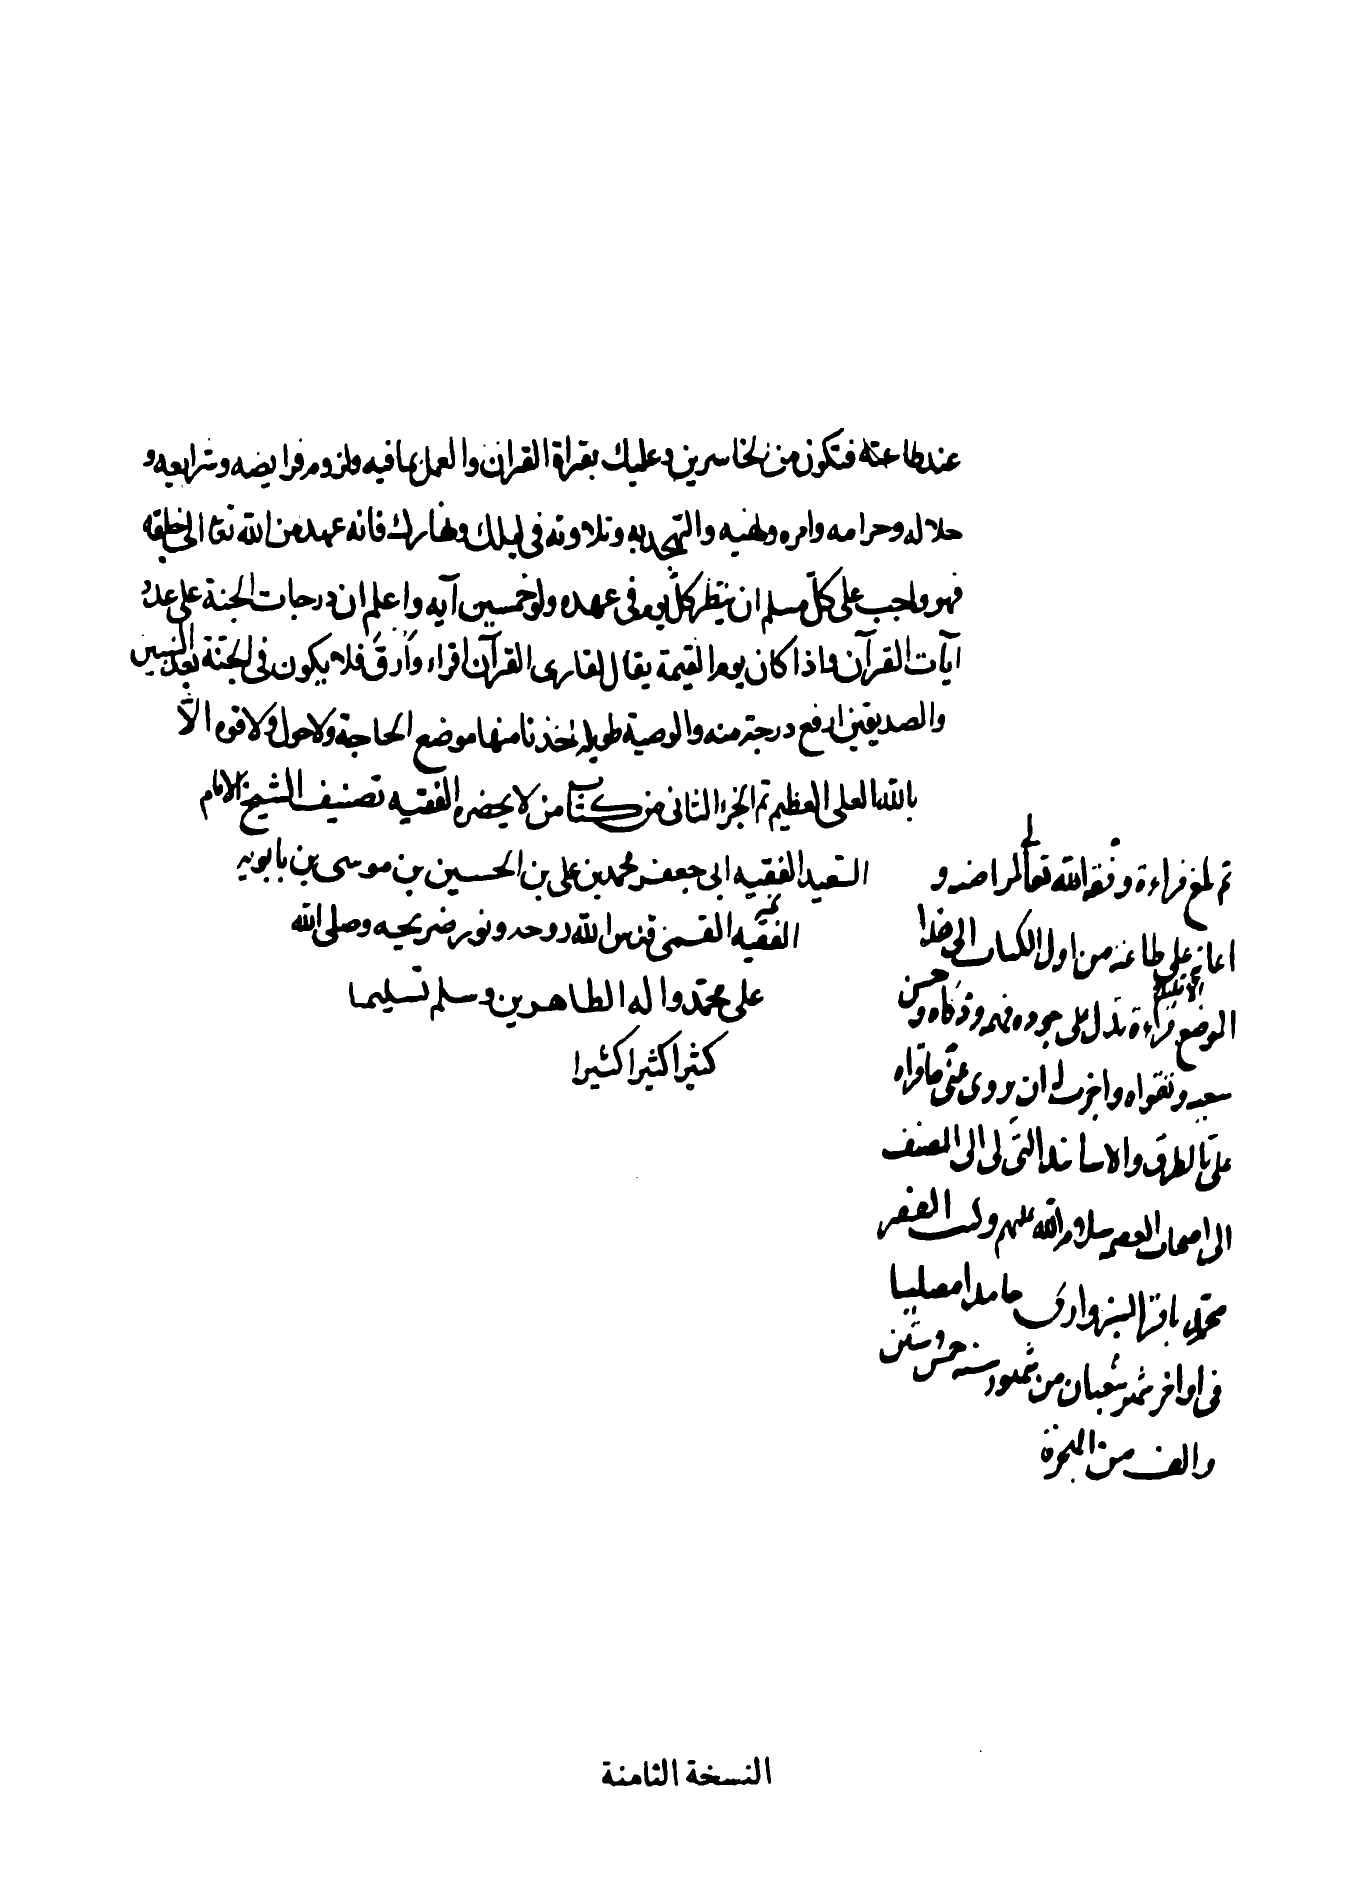 عند طاعته فتكون من الخاسرين وعليك بقراة القران والعمل بما فيه ولزوم فرايضه وشرايعه و
حلاله وحرامه وامره ونهيه والتهجد به وتلاوته في ليلك ونهارك فانه عهد من الله تعا الى خلقه
فهو واجب على كل مسلم ان ينظر كل يوم في عهده ولو خمسين آيه واعلم ان درجات الجنة على عدد
ايآت القرآن واذا كان يوم القيمة يقال لقارى القرآن اقراء وارق فلا يكون في الجنة بعد النبيين
والصديقين ارفع درجة منه والوصية طويله اخذنا منها موضع الحاجة ولا حول ولا قوه الا
بالله العلى العظيم تم الجزء الثانى من كتاب من لا يحضره الفقيه تصنيف الشيخ الامام
السعيد الفقيه ابى جعفر محمد بن على بن الحسين بن موسى بن بابويه
الفقيه القمى قدس الله روحه ونور ضريحه وصلى الله
على محمد واله الطاهرين وسلم تسليما
كثيرا كثيرا كثيرا
تم بلغ قراءة وفقه الله تعالى لمراضيه و
اعانه على طاعته من اول الكتاب الى هذا
الموضع الا قليلا قراءة تدل على جوده فهمه وذكاه وحسن
سعيه وتقواه واجزت له ان يروى عنى ما قراه
على بالطرق والاسانيد التى لى الى المصنف
الى اصحاب العصمه سلام الله عليهم وكتب الفقير
محمد باقر السبزوارى حامدا مصليا
فى اواخر شهر شعبان من شهور سنه خمس وستين
والف من الهجرة
النسخة الثامنة